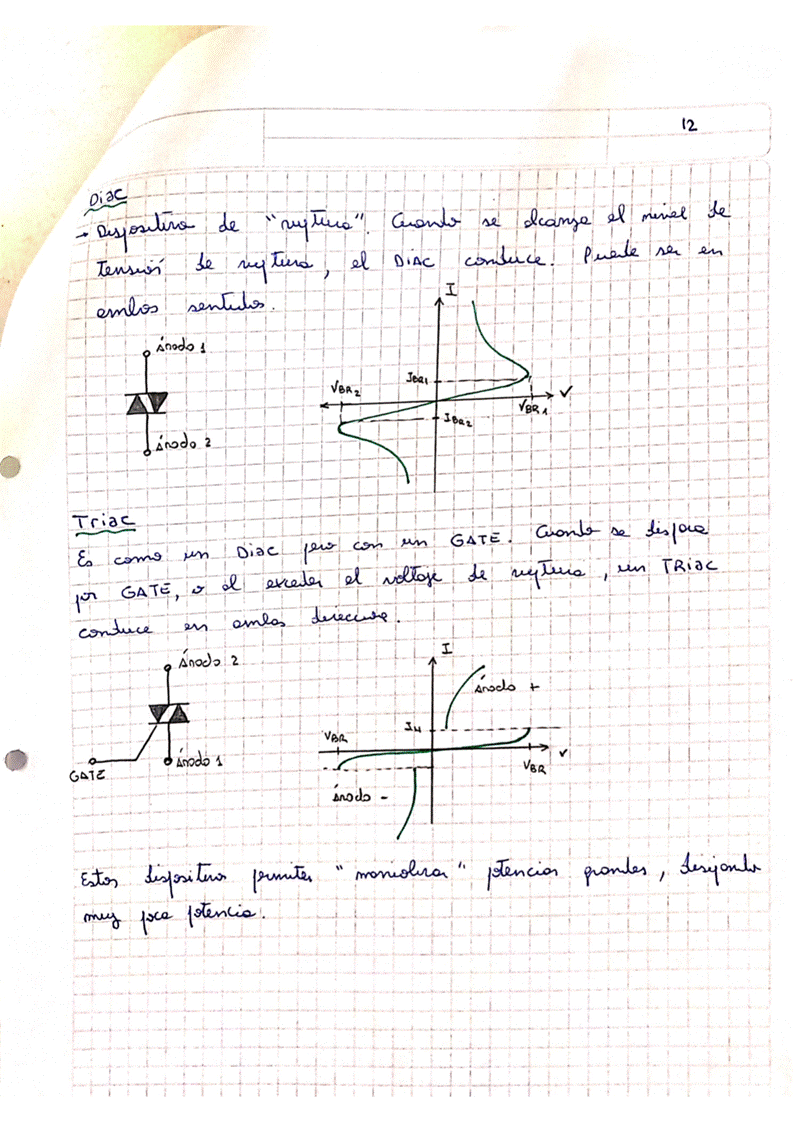 12
Diac
→ Dispositivo de "ruptura". Cuando se alcanza el nivel de
tensión de ruptura, el DIAC conduce. Puede ser en
ambos sentidos.
Ánodo 1
Ánodo 2
I
IBR1
VBR2
V
VBR1
IBR2
Triac
Es como un Diac pero con un GATE. Cuando se dispara
por GATE, o al exceder el voltaje de ruptura, un TRIAC
conduce en ambas direcciones.
Ánodo 2
GATE
Ánodo 1
I
Ánodo +
IH
VBR
V
VBR
Ánodo -
Estos dispositivos permiten "maniobrar" potencias grandes, disipando
muy poca potencia.